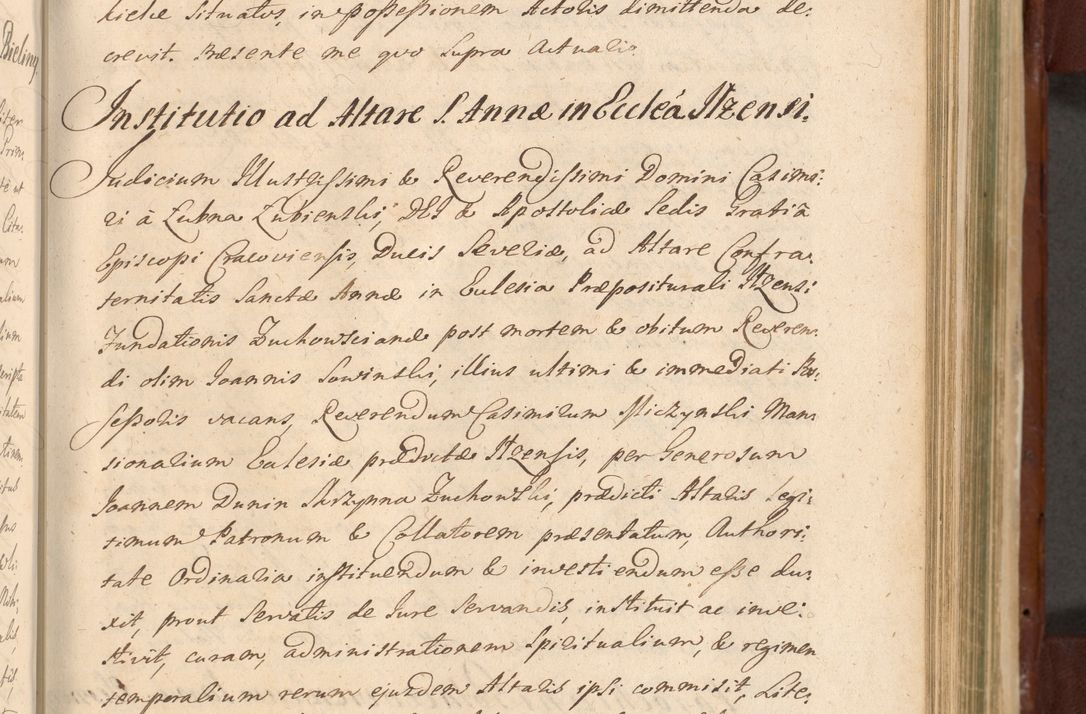 kiche Situatus, in possessionem Actoris dimittenda de:
crevit. Præsente me quo supra Actuali.
Institutio ad Altare S. Annæ in Eccleá Ilzensi.
Judicium Illustrissimi & Reverendissimi Domini Casimi:
ri à Lubna Lubienski, DEI & Apostolicæ Sedis Gratiâ
Episcopi Cracoviensis, Ducis Severiæ, ad Altare Confra:
ternitatis Sanctæ Annæ in Ecclesia Præpositurali Ilzensi
Fundationis Zuchowscianæ post mortem & obitum Reveren:
di olim Joannis Sowinski, illius ultimi & immediati Pos:
sessoris vacans, Reverendum Casimirum Miczynski Man:
sionarium Ecclesiæ prædictæ Ilzensis, per Generosum
Joannem Dunin Skrzynna Zuchowski, prædicti Altaris Legi:
timum Patronum & Collatorem præsentatum, Authori:
tate Ordinaria instituendum & investiendum esse du:
xit, prout servatis de Jure servandis, instituit ac inve:
stivit, curam, administrationem Spiritualium, & regimen
temporalium rerum ejusdem Altaris ipsi commisit, Lite: